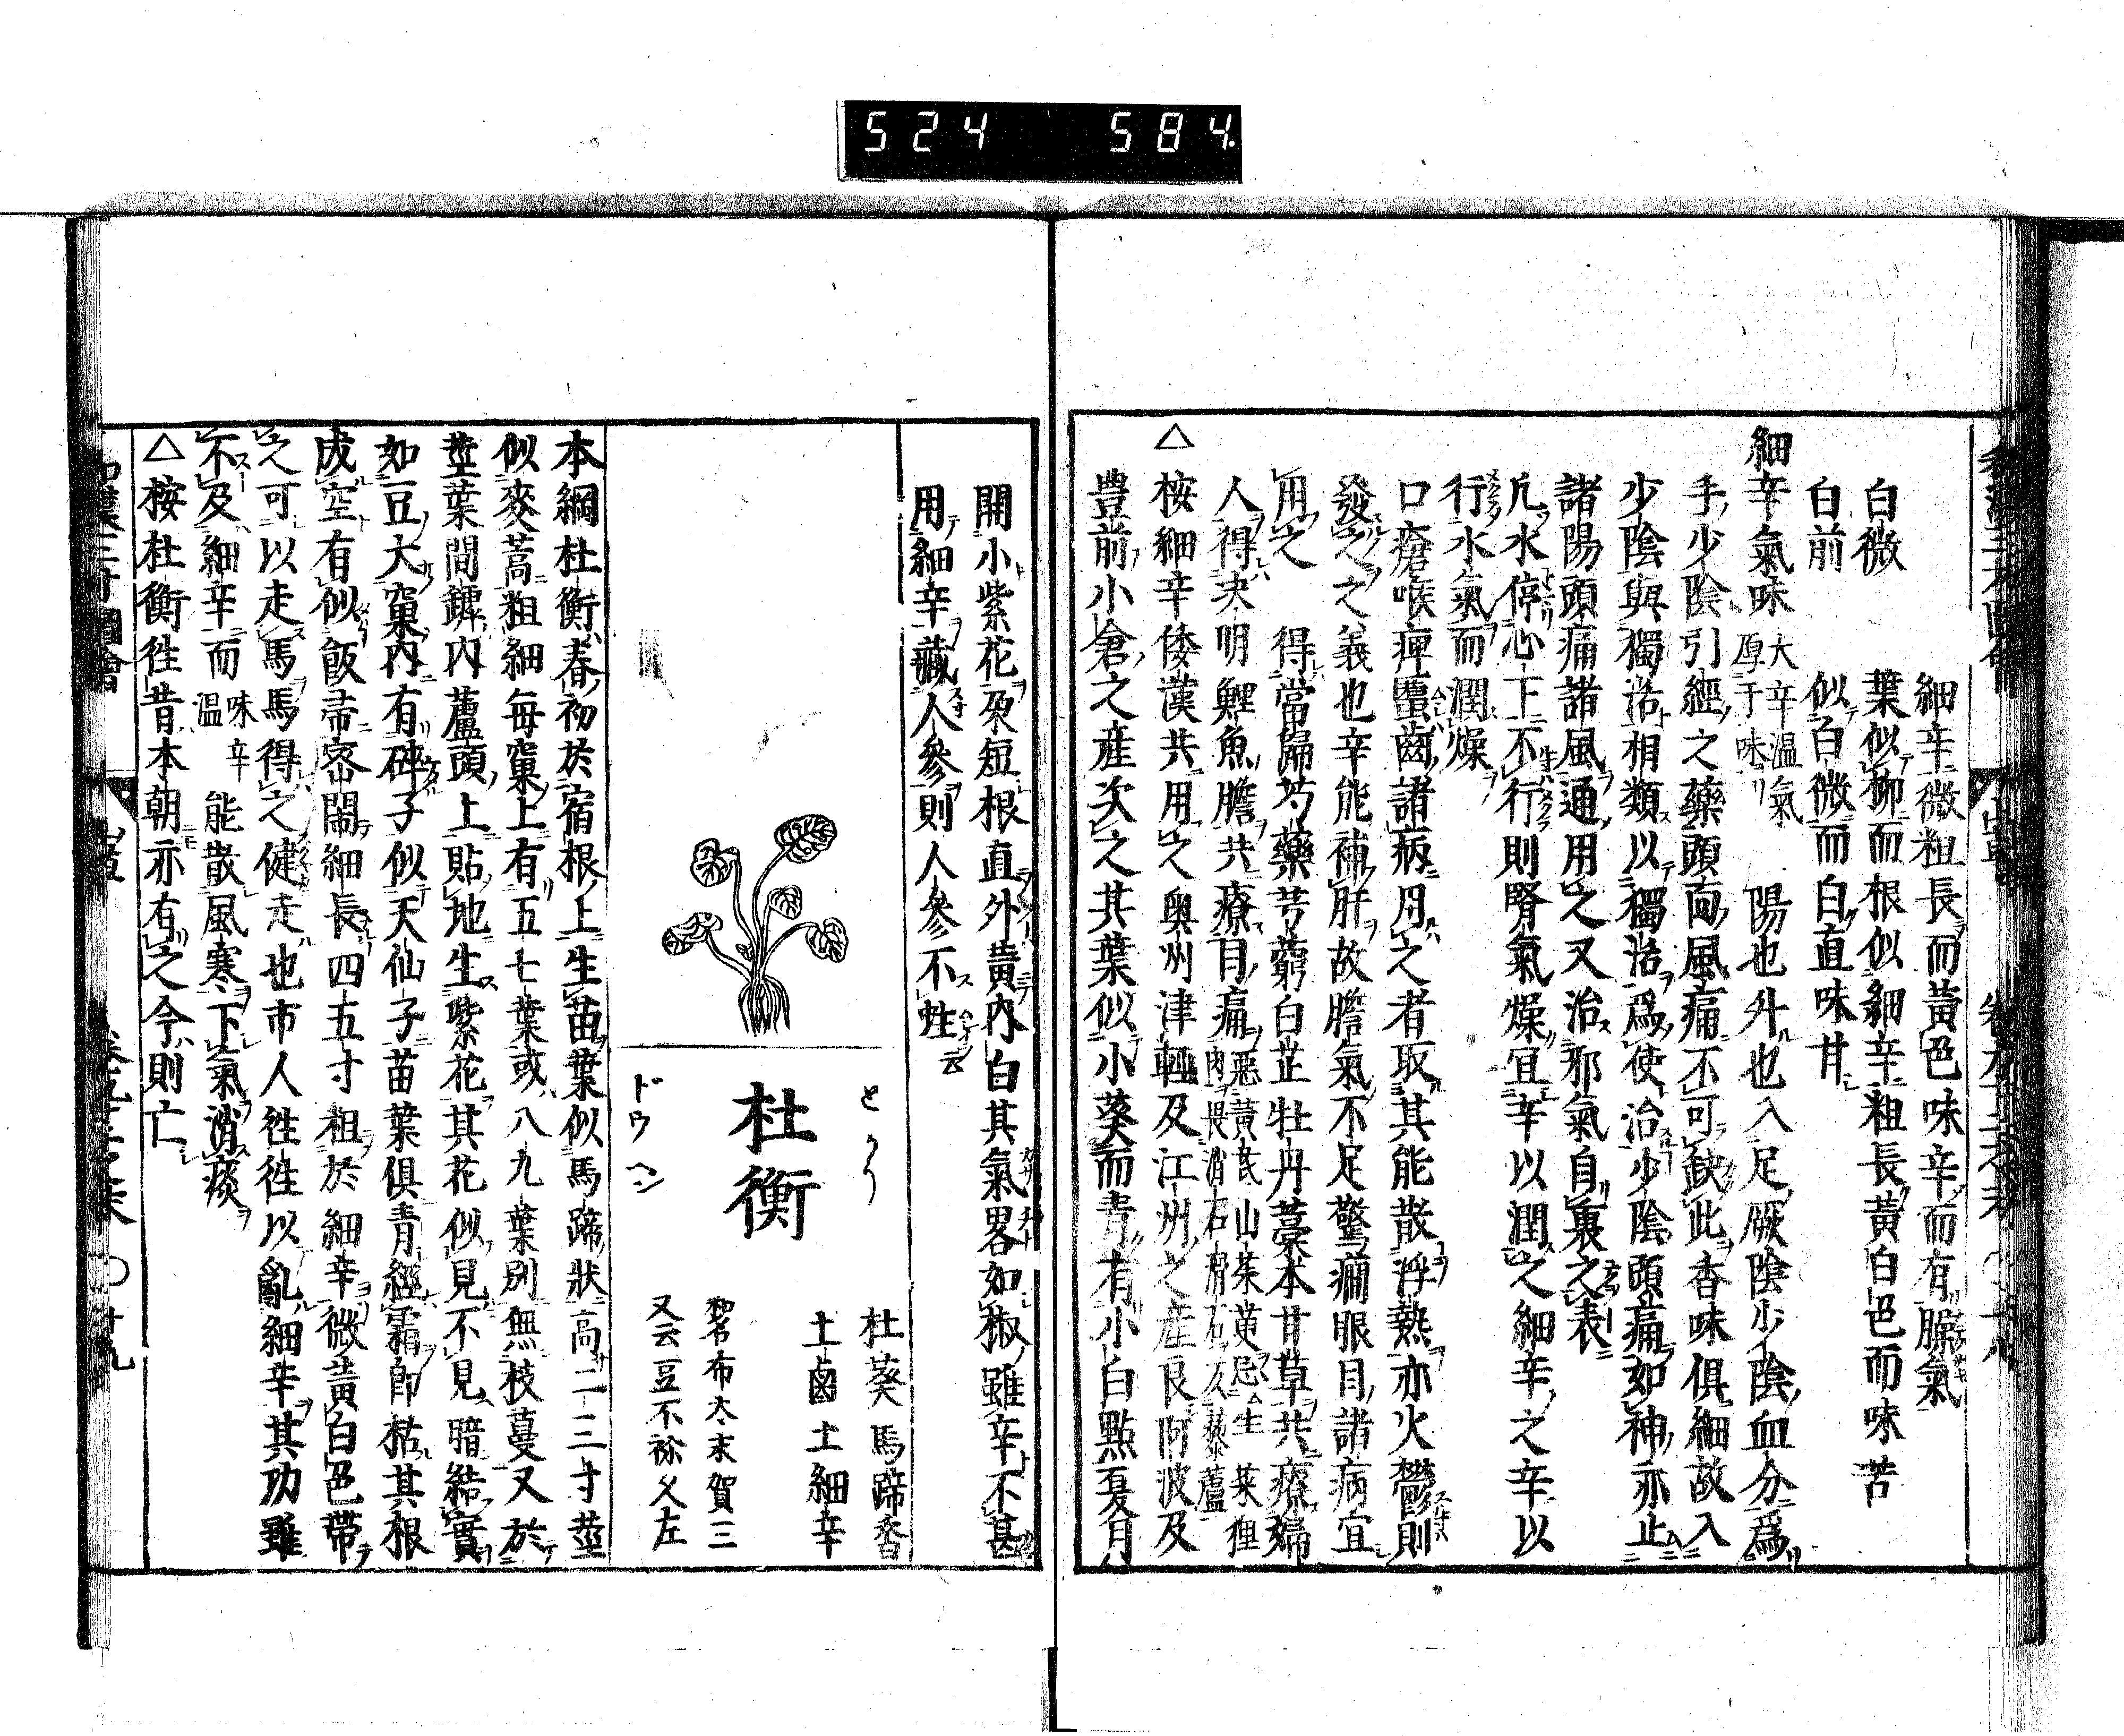 524 584.
細辛微粗長而黃色味辛而有臊氣
白微 葉似柳而根似細辛粗長黃白色而味苦
白前 似白微而白直味甘
細辛氣味 大辛溫氣厚于味 陽也升也入足厥陰少陰血分爲
手少陰引經之藥頭面風痛不可缺此香味俱細故入
少陰與獨活相類以獨活爲使治少陰頭痛如神亦止
諸陽頭痛諸風通用之又治邪氣自裏之表
凡水停心下不行則腎氣燥宜辛以潤之細辛之辛以
行水氣而潤燥
口瘡喉痺䘌齒諸病用之者取其能散浮熱亦火鬱則
發之之義也辛能補肝故膽氣不足驚癎眼目諸病宜
用之 得當歸芍藥芎藭白芷牡丹藁本甘草共療婦
人得决明鯉魚膽共療目痛 惡黃芪山茱萸忌生菜狸肉畏消石滑石反藜蘆
△按細辛倭漢共用之奥州津輕及江州之産良阿波及
豊前小倉之産次之其葉似小葵而青有小白點夏月
開小紫花朶短根直外黃内白其氣畧如椒雖辛不甚
用細辛藏人參則人參不蛀云
とかう
杜衡
ドウヘン
杜葵 馬蹄香
土鹵 土細辛
和名布太末賀三
又云豆不祢久左
本綱杜衡春初於宿根上生苗葉似馬蹄狀高二三寸莖
似麥蒿粗細每窠上有五七葉或八九葉别無枝蔓又於
莖葉間罅内蘆頭上貼地生紫花其花似見不見暗結實
如豆大窠内有碎子似天仙子苗葉俱青經霜卽枯其根
成空有似飯帚密閙細長四五寸粗於細辛微黃白色帶
之可以走馬馬得之健走也市人徃徃以亂細辛其功雖
不及細辛而 味辛溫 能散風寒下氣消痰
△按杜衡徃昔本朝亦有之今則亡